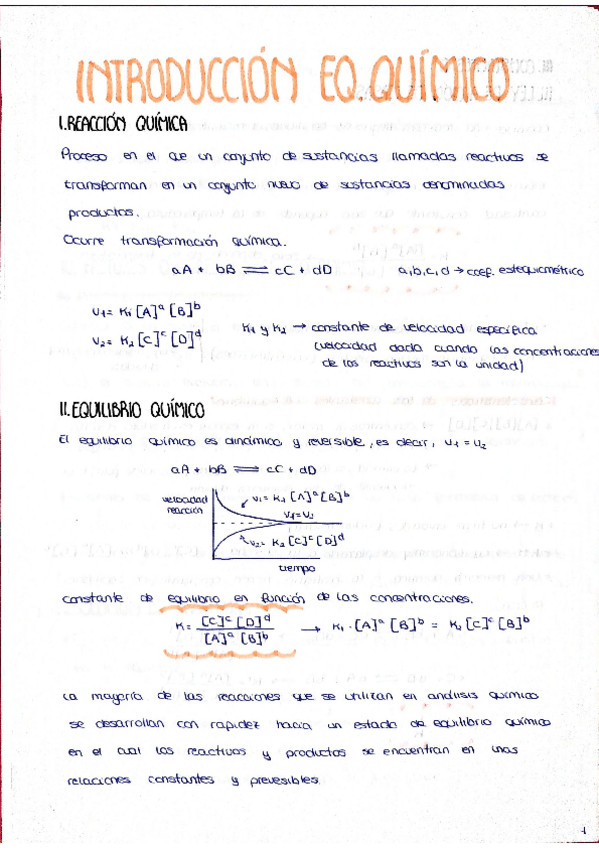 INTRODUCCIÓN EQ. QUÍMICO
I. REACCIÓN QUÍMICA
Proceso en el que un conjunto de sustancias llamadas reactivos se
transforman en un conjunto nuevo de sustancias denominadas
productos.
Ocurre transformación química.
aA + bB ⇌ cC + dD a,b,c,d → coef. estequiométrico
v₁ = K₁ [A]ᵃ [B]ᵇ
v₂ = K₂ [C]ᶜ [D]ᵈ
K₁ y K₂ → constante de velocidad específica
(velocidad dada cuando las concentraciones
de los reactivos son la unidad)
II. EQUILIBRIO QUÍMICO
El equilibrio químico es dinámico y reversible, es decir, v₁ = v₂
aA + bB ⇌ cC + dD
velocidad
reacción
v₁ = K₁ [A]ᵃ [B]ᵇ
v₁ = v₂
v₂ = K₂ [C]ᶜ [D]ᵈ
tiempo
constante de equilibrio en función de las concentraciones.
K = [C]ᶜ [D]ᵈ / [A]ᵃ [B]ᵇ → K₁ · [A]ᵃ [B]ᵇ = K₂ [C]ᶜ [B]ᵇ
La mayoría de las reacciones que se utilizan en análisis químico
se desarrollan con rapidez hacia un estado de equilibrio químico
en el cual los reactivos y productos se encuentran en unas
relaciones constantes y previsibles.
1